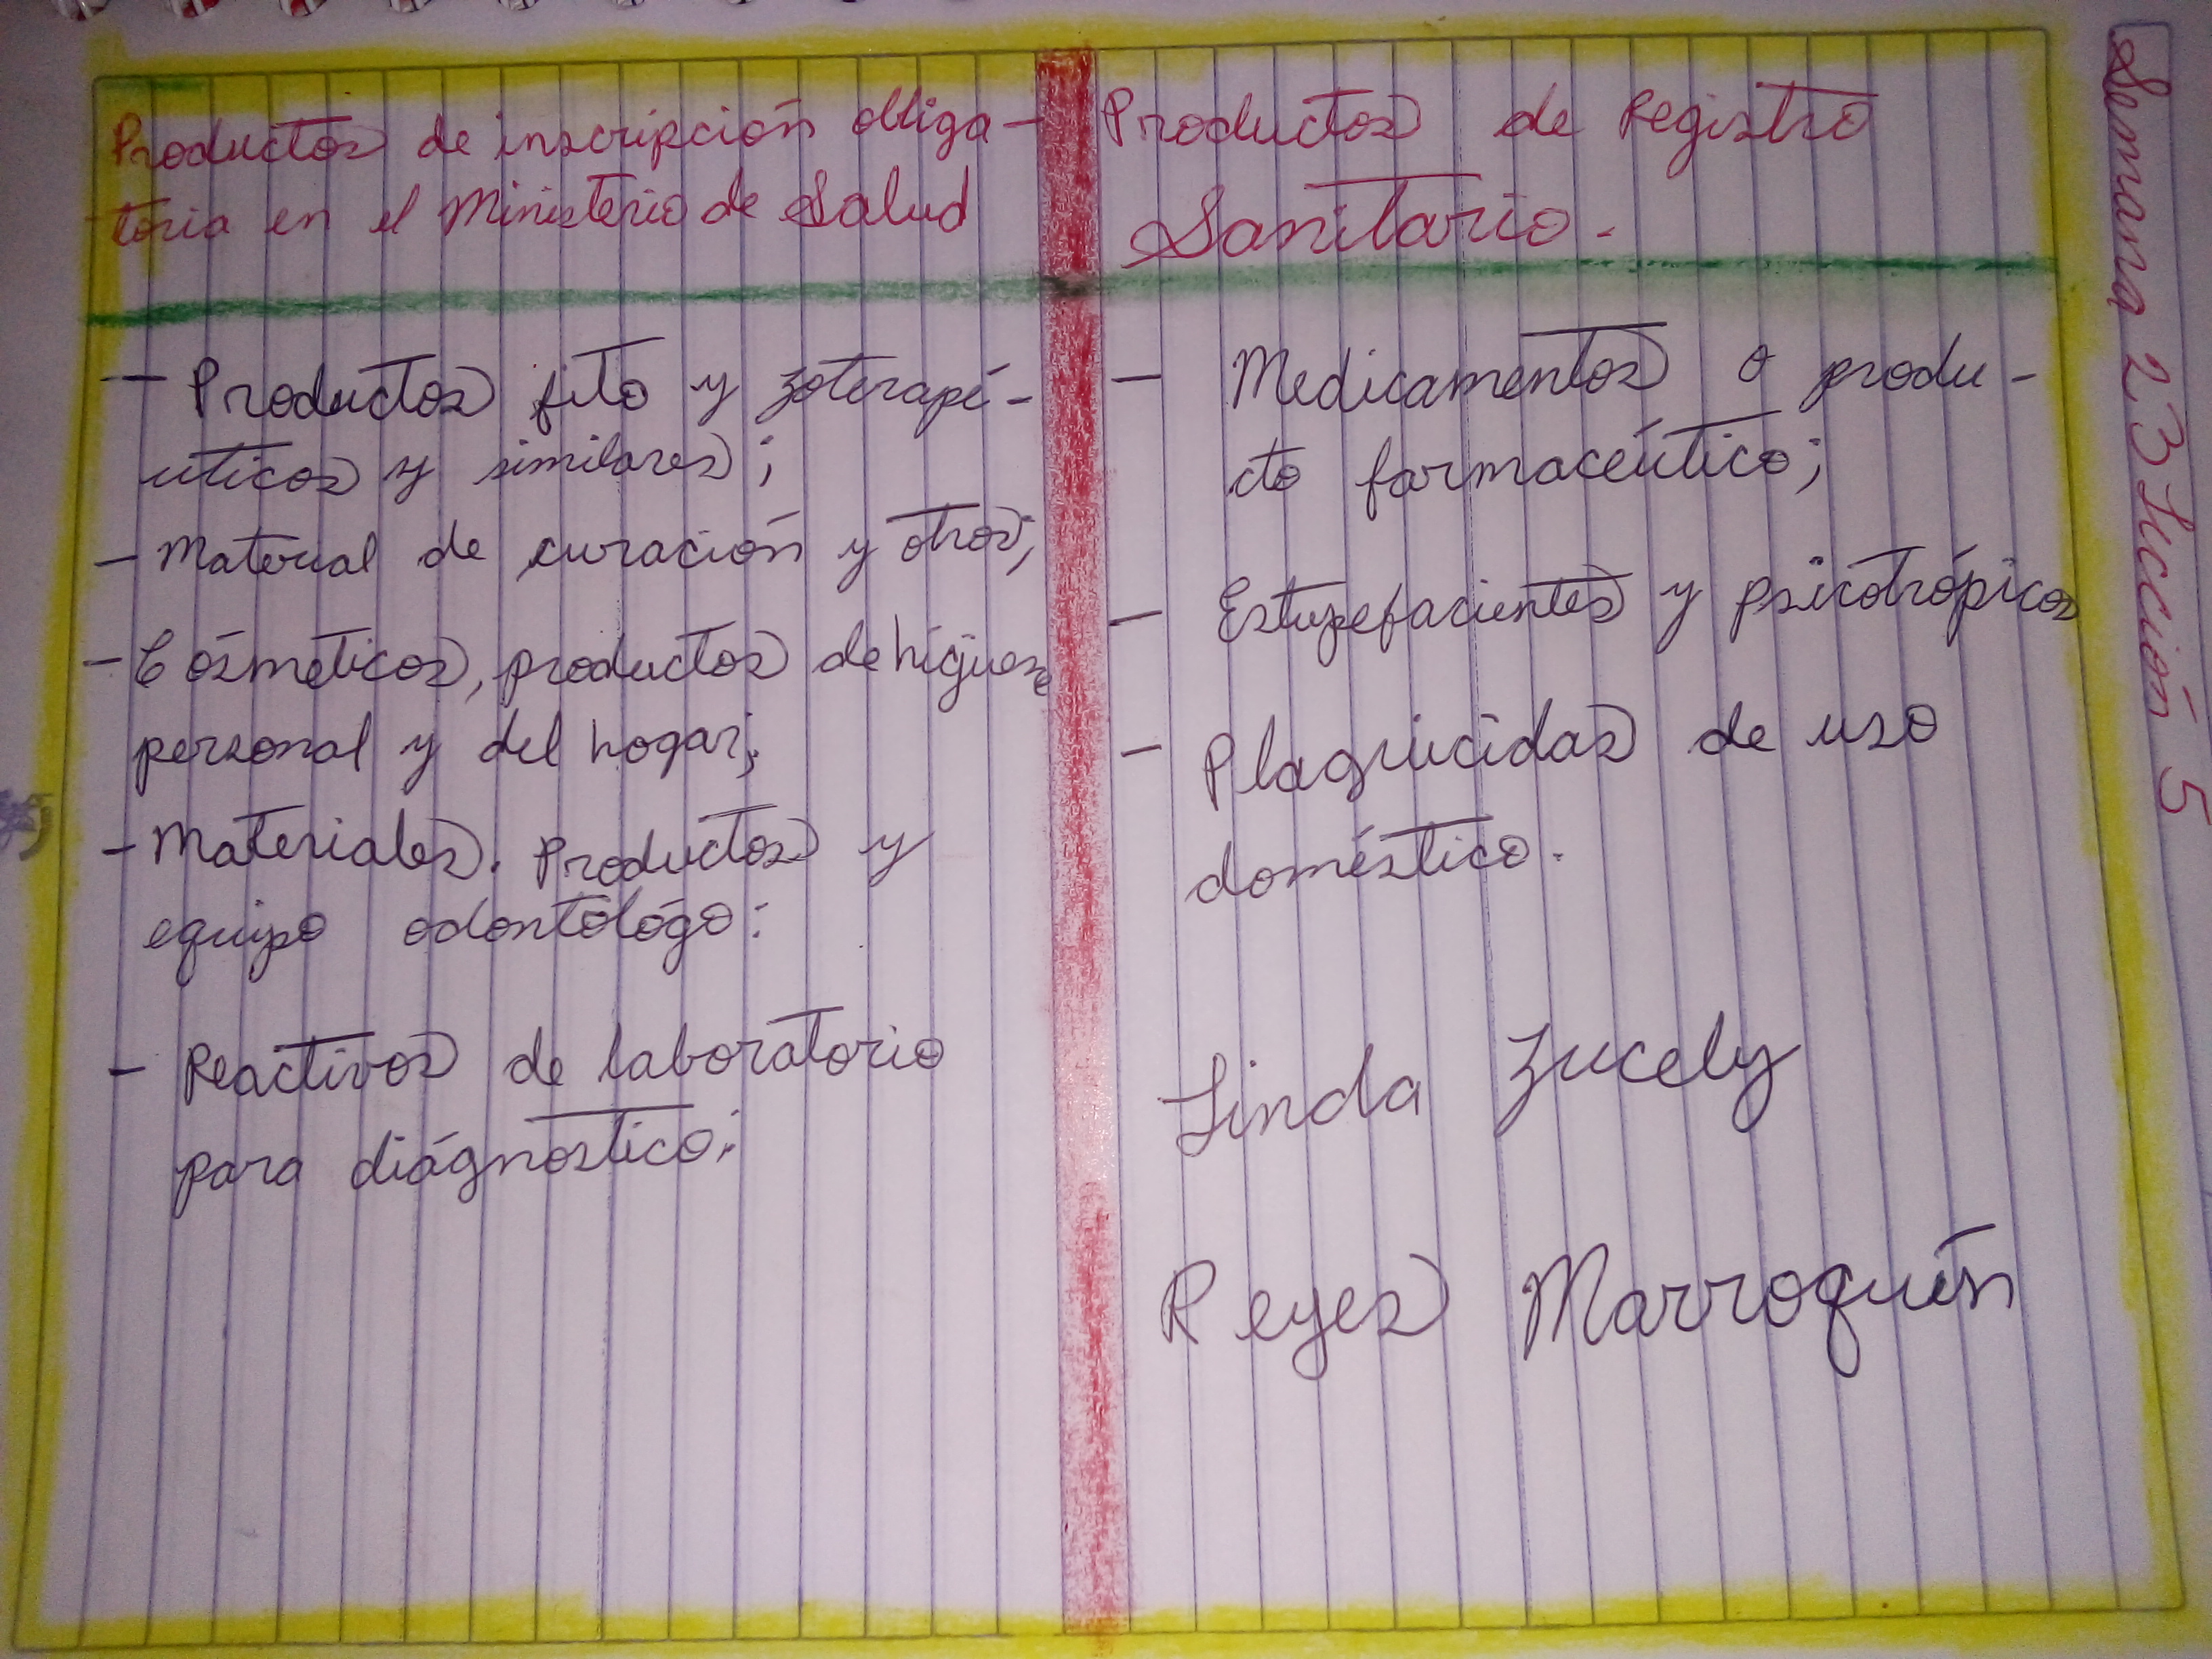 Productos de inscripción obliga-
toria en el Ministerio de Salud
- Productos fito y zoterapé-
uticos y similares;
- Material de curación y otros;
- Cósmeticos, productos de higiene
personal y del hogar;
- Materiales. Productos y
equipo odontológo:
- Reactivos de laboratorio
para diágnostico;
Productos de Registro
Sanitario.
- Medicamentos o produ-
cto farmacéutico;
- Estupefacientes y psicotrópicos
- Plaguicidas de uso
doméstico.
Linda Zucely
Reyes Marroquín
Semana 23 Lección 5